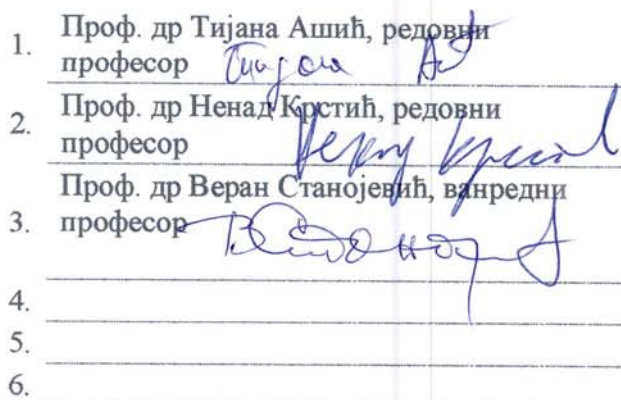 1. Проф. др Тијана Ашић, редовни
професор
2. Проф. др Ненад Крстић, редовни
професор
3. Проф. др Веран Станојевић, ванредни
професор
4.
5.
6.